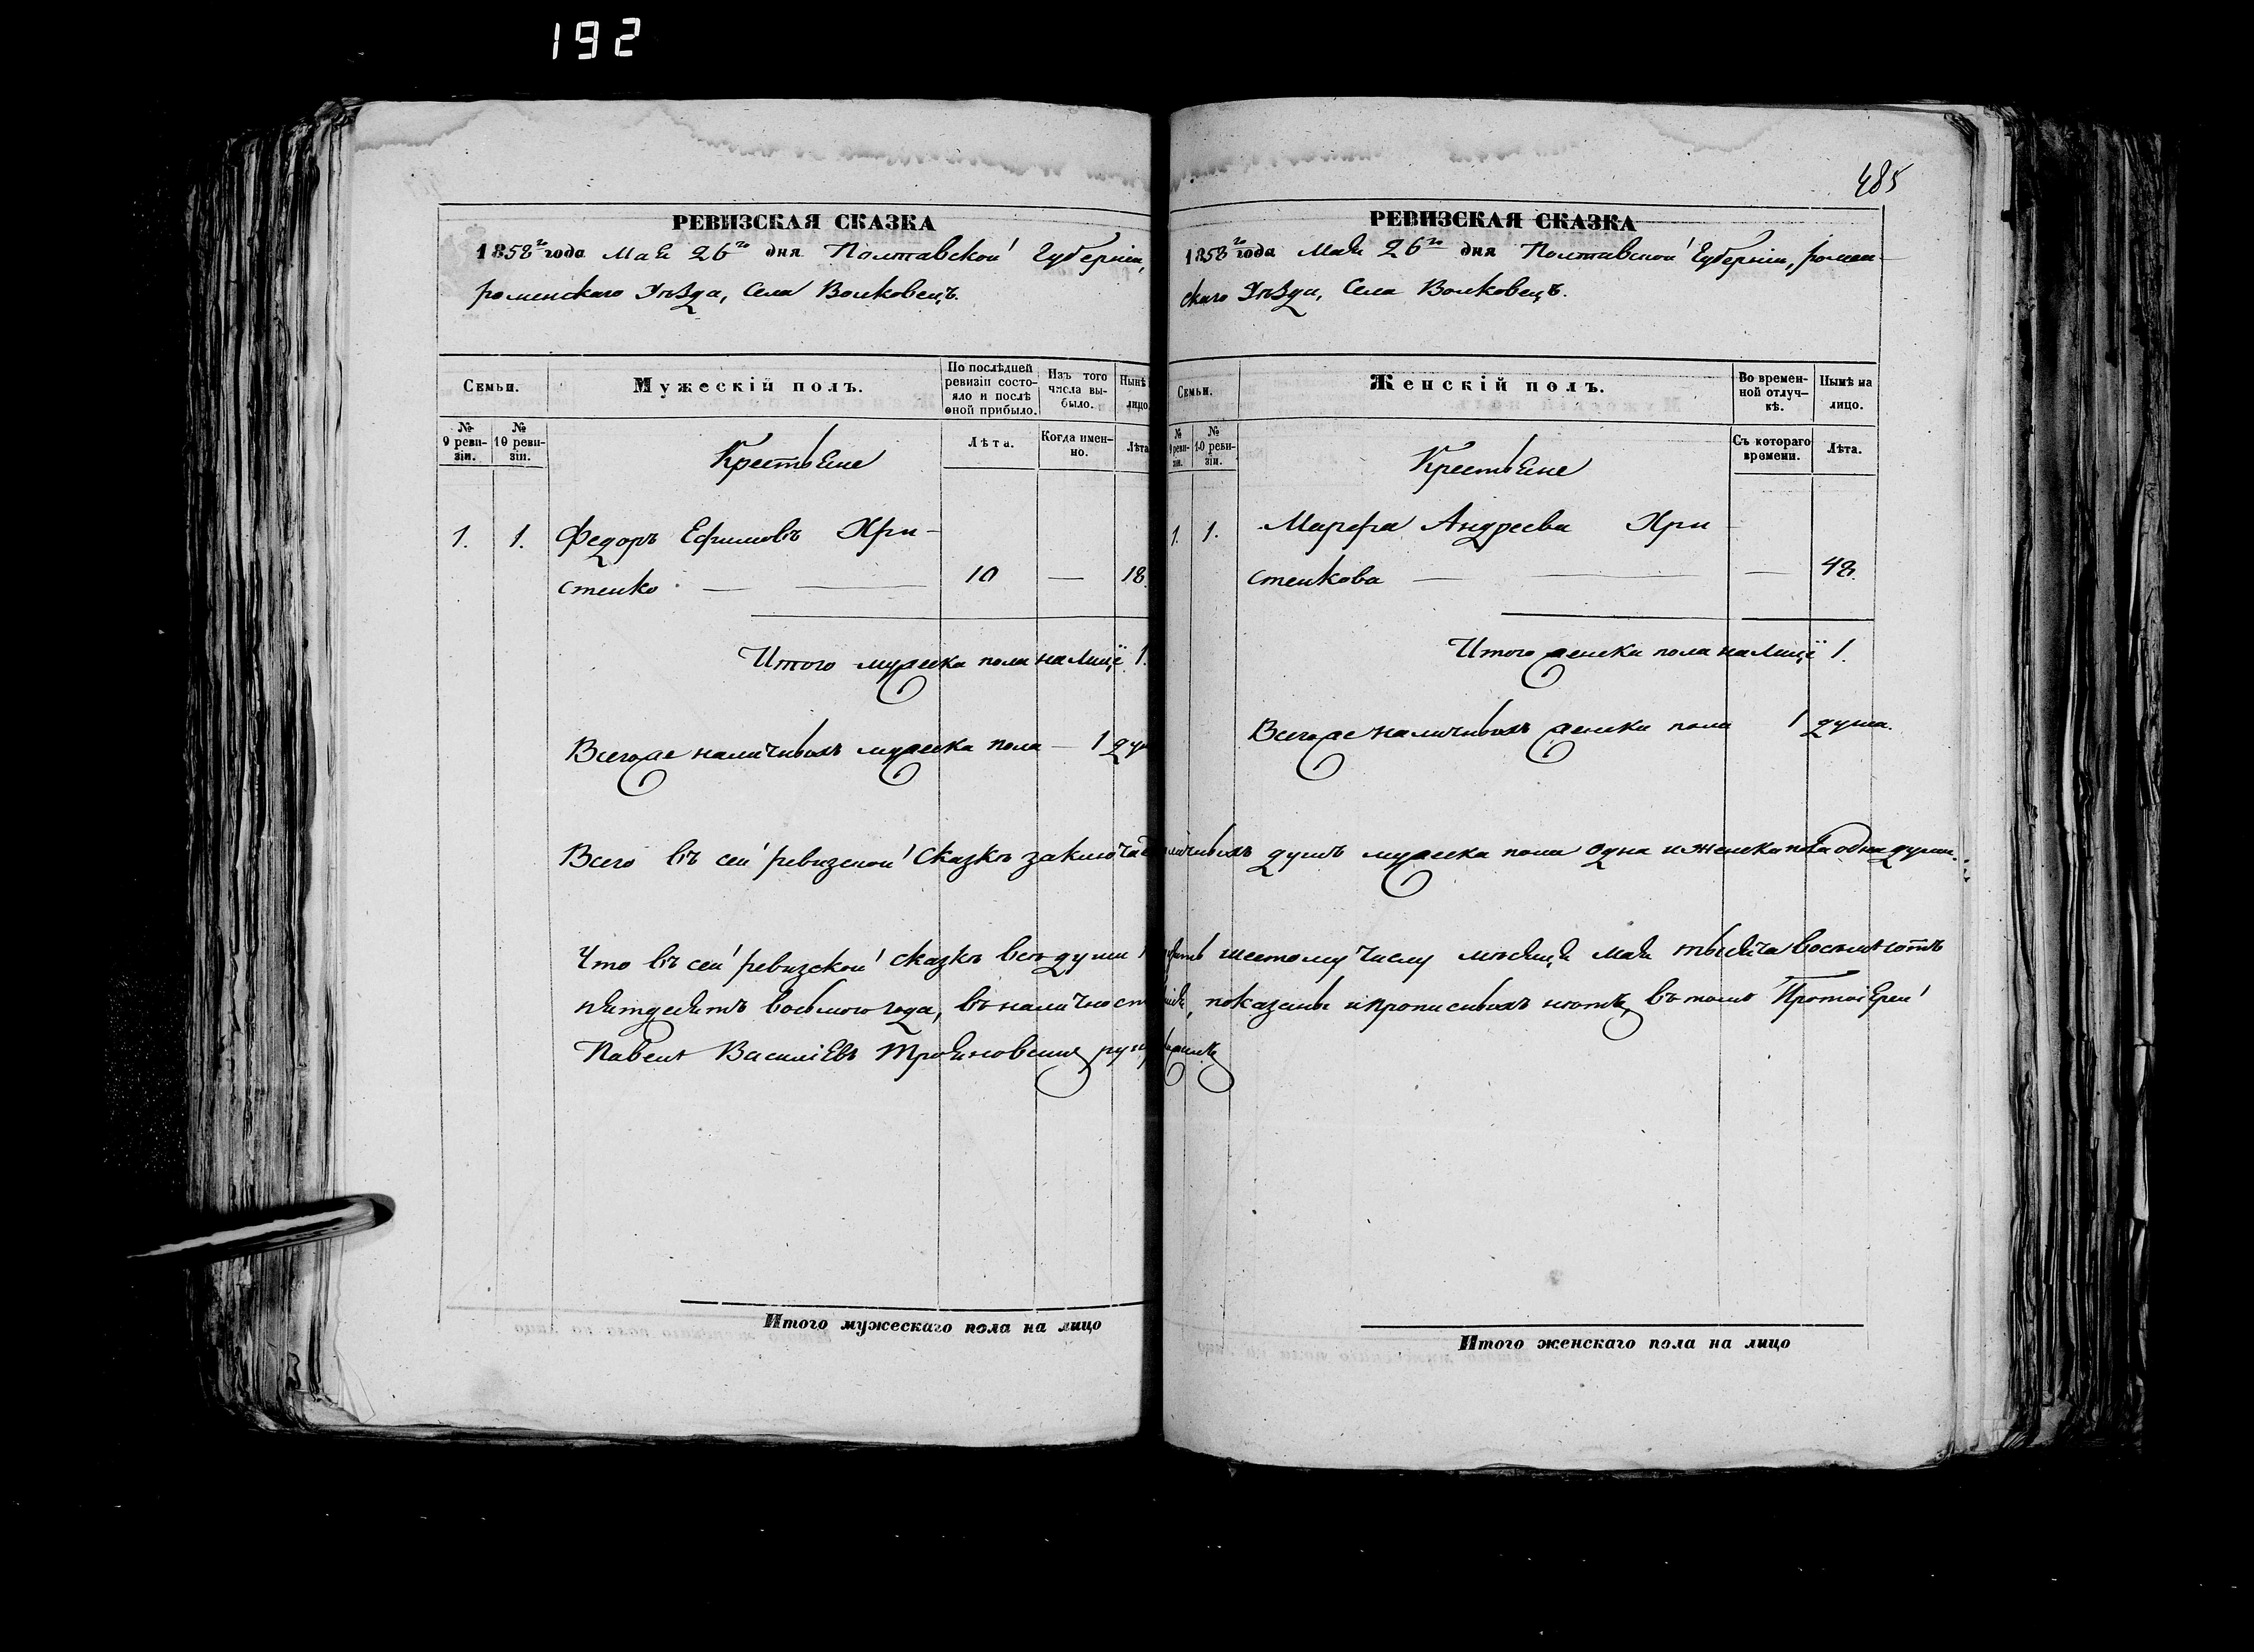 192
РЕВИЗСКАЯ СКАЗКА
1858го года Мая 26го дня Полтавской Губерніи,
роменскаго Уѣзда, Села Волковецъ.
Семьи.
Мужескій полъ.
По послѣдней ревизіи состояло и послѣ оной прибыло.
Изъ того числа выбыло.
Нынѣ лицо
№ 9 ревизіи.
№ 10 ревизіи.
Крестьяне
Лѣта.
Когда именно.
Лѣта
1. 1. Федоръ Ефимовъ Хри-
стенко — — 10 — 18.
Итого мужеска пола налице 1.
Всегоже наличныхъ мужеска пола — 1 ду
Всего въ сей ревизской Сказкѣ заключае
Что въ сей ревизской сказкѣ всѣ души
пятдесятъ восьмого года, въ наличност
Павелъ Василіевъ Трояновскій рук
Итого мужескаго пола на лицо
485
РЕВИЗСКАЯ СКАЗКА
1858го года Мая 26го дня Полтавской Губерніи, ромен-
скаго Уѣзда, Села Волковецъ.
Семьи.
Женскій полъ.
Во временной отлучкѣ.
Нынѣ на лицо.
№ 9 ревизіи.
№ 10 ревизіи.
Крестьяне
Съ котораго времени.
Лѣта.
1. 1. Марфа Андреева Хри-
стенкова — — — 48.
Итого женска пола налице 1.
Всегоже наличныхъ женска пола 1 душа.
личныхъ душъ мужеска пола одна и женска пола одна душа.
шестому числу мѣсяца мая тысяча восемьсотъ
показаны и прописныхъ нѣтъ, въ томъ Протоіерей
Итого женскаго пола на лицо